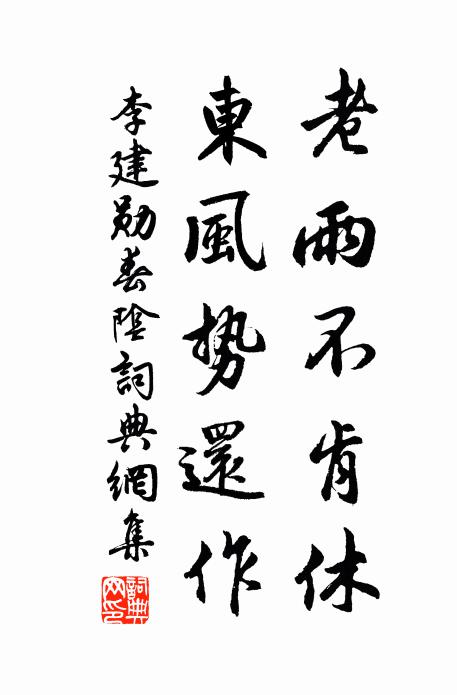 老雨不肯休
東風勢還作
李建勛春陰詞典網集
詞典網印